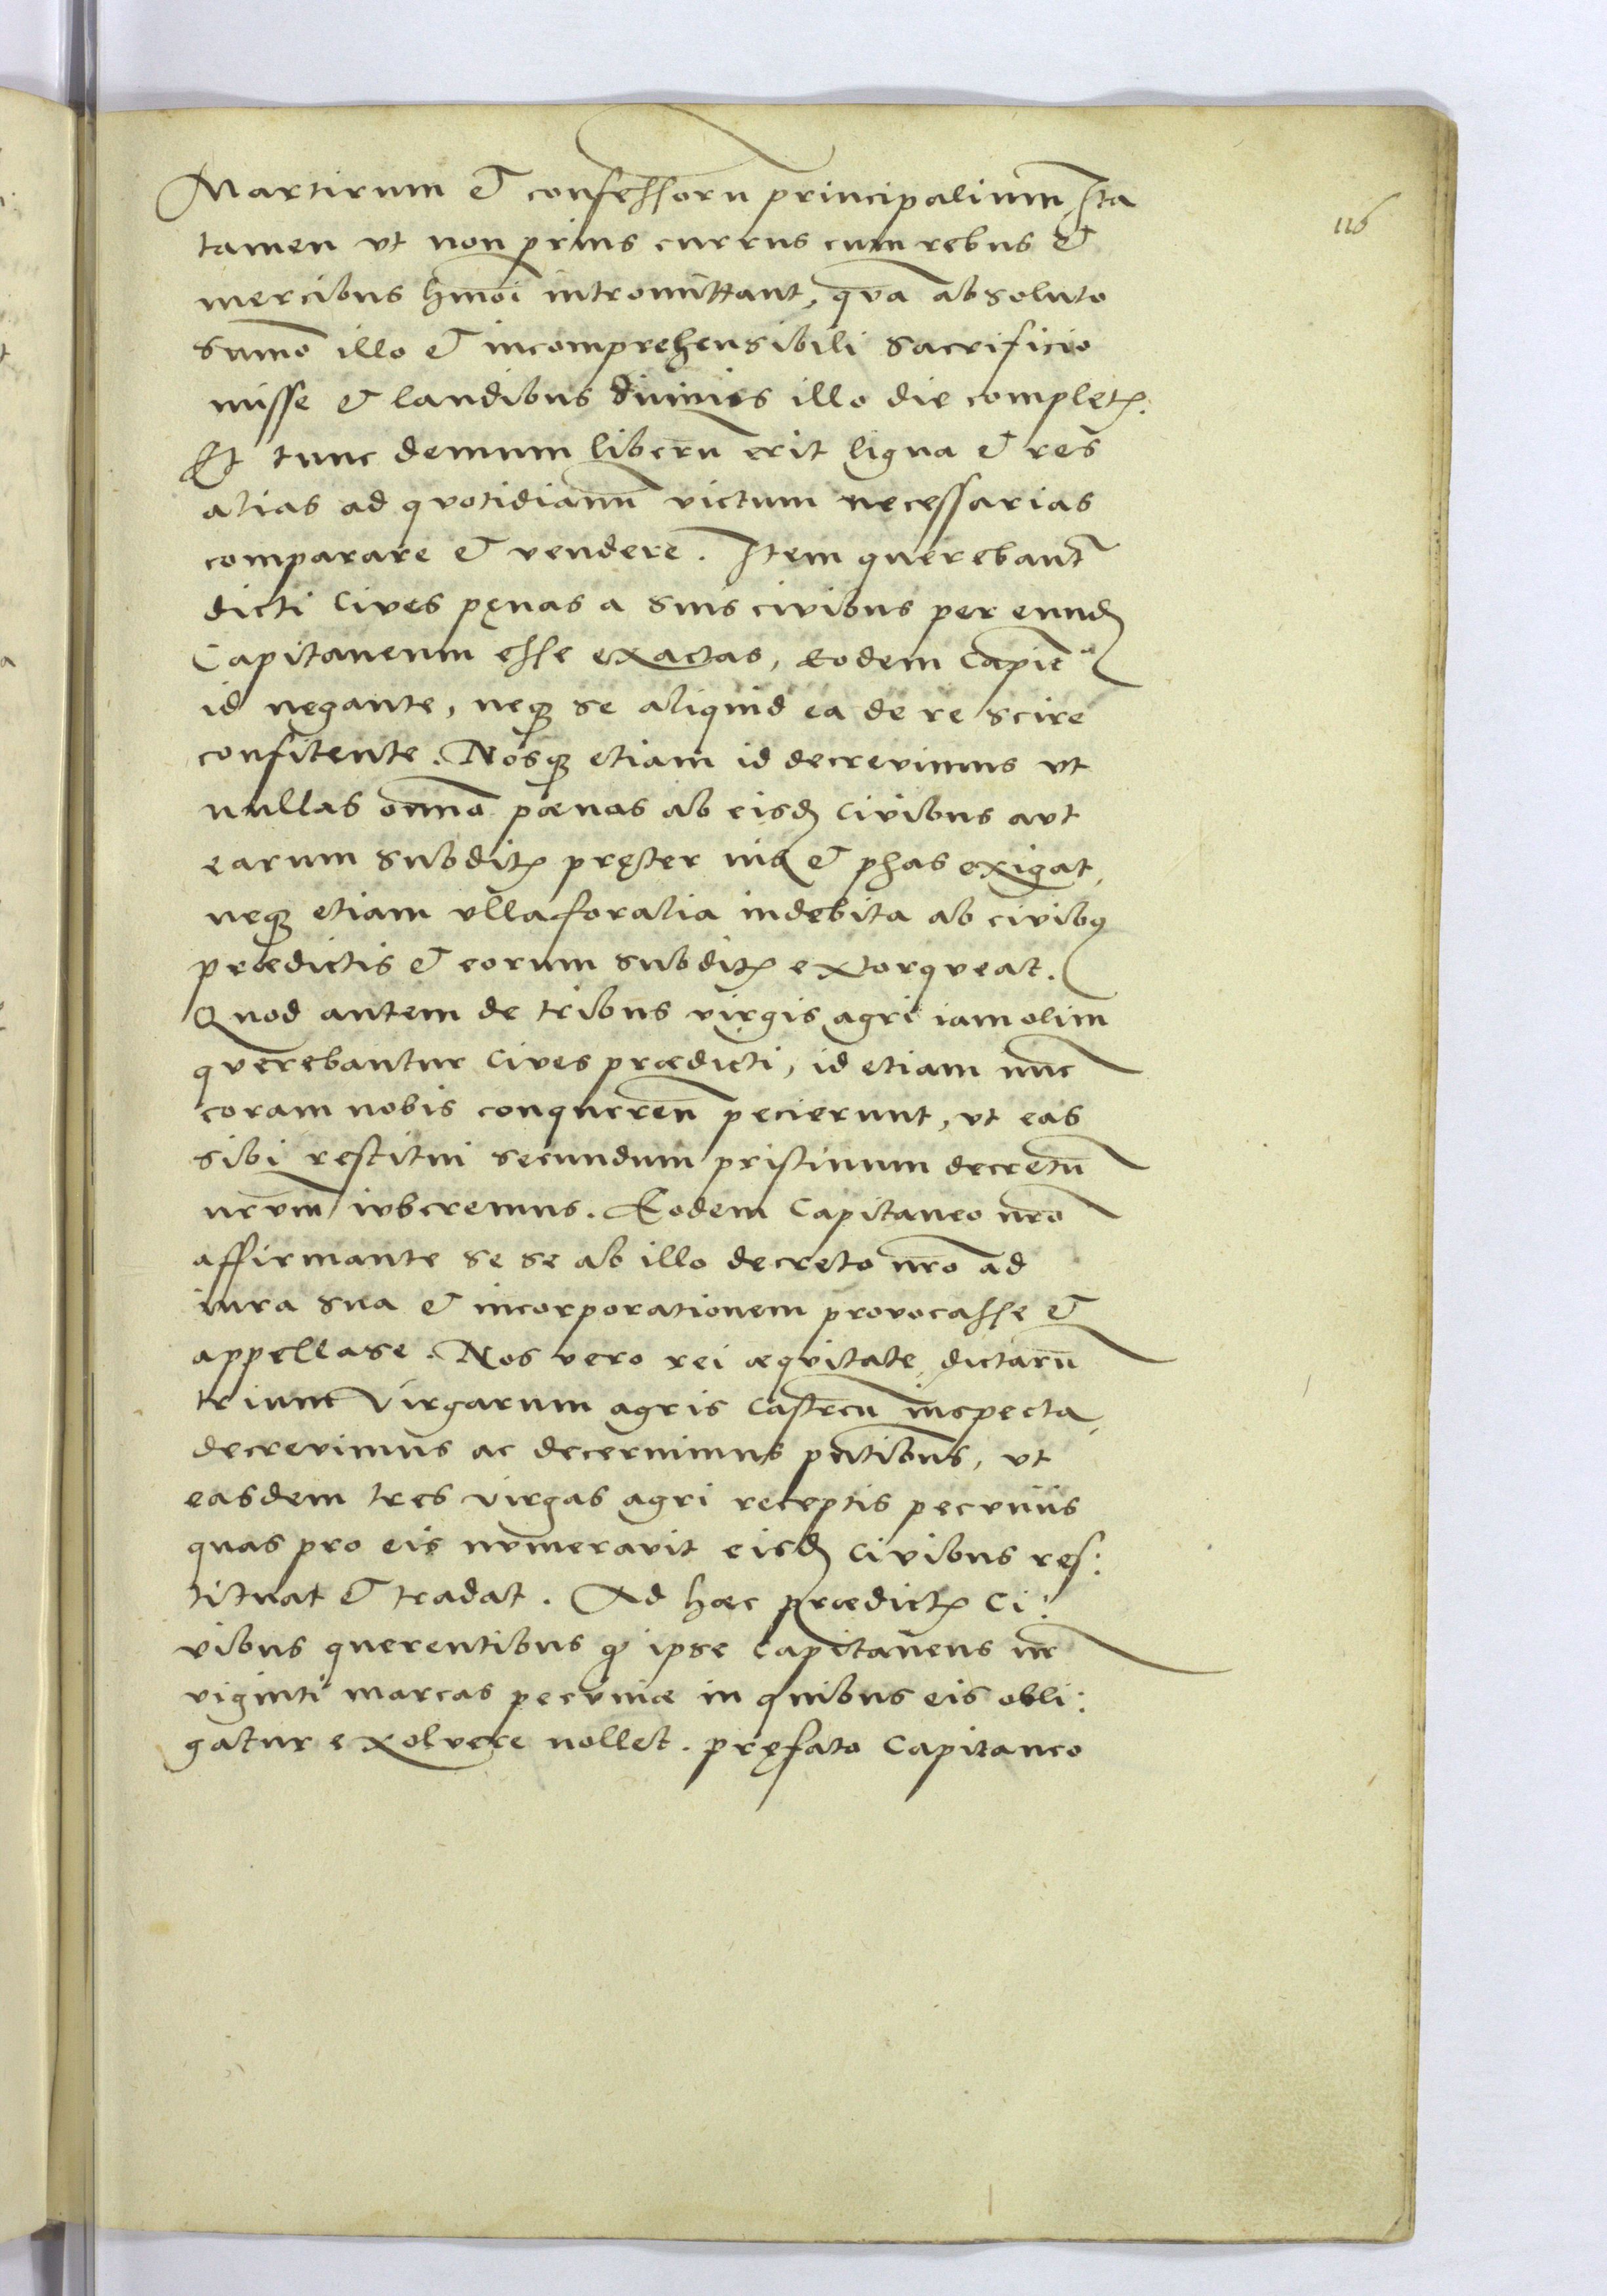 Martirum et confessorū principalium Ita
116
tamen vt non prius currus cum rebus et
mercibus hmōi intromittant, qvā absoluto
sumō illo et incomprehensibili sacrificio
misse et laudibus diuinis illo die completꝭ.
Et tunc demum liberū erit ligna et res
alias ad qvotidianū victum necessarias
comparare et vendere. Item querebant᷑
dicti Cives pęnas a suis civibus per eundꝫ
Capitaneum esse exactas, Eodem Capit̄
id negante, neqꝫ se aliquid ea de re scire
confitente. Nosqꝫ etiam id decrevimus vt
nullas omō pœnas ab eisdꝫ Civibus avt
earum subditꝭ pręter ius et phas exigat,
neqꝫ etiam vlla foralia indebita ab civibꝯ
prædictis et eorum subditꝭ extorqveat.
Quod autem de tribus virgis agri iam olim
qverebantur Cives prædicti, id etiam nūc
coram nobis conqueren̄ pecierunt, vt eas
sibi restitui secundum pristinum decretū
nr̄vm ivberemus. Eodem Capitaneo nr̄o
affirmante se se ab illo decreto nr̄o ad
iura sua et incorporationem provocasse et
appellase. Nos vero rei æqvitate, dictarū
trium Virgarum agris Castren̄ inspecta,
decrevimus ac decernimus pn̄tibus, vt
easdem tres virgas agri receptis pecvniis
quas pro eis nvmeravit eisdꝫ Civibus res:
tituat et tradat. Ad hæc prædictꝭ Ci:
vibus querentibus qꝫ ipse Capitaneus nr̄
viginti marcas pecvniæ in quibus eis obli:
gatur exolvere nollet. pręfato Capitaneo